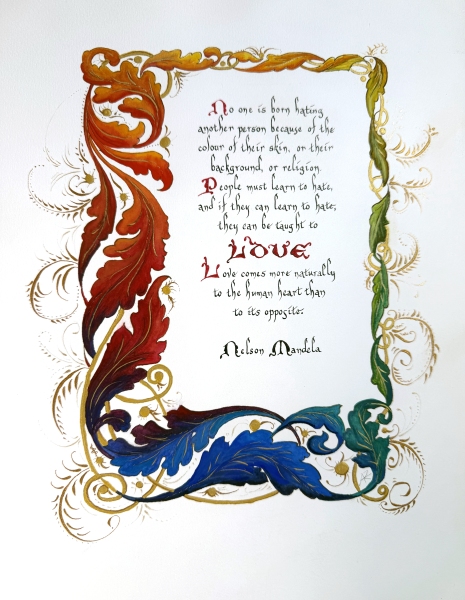 No one is born hating
another person because of the
colour of their skin, or their
background, or religion.
People must learn to hate,
and if they can learn to hate,
they can be taught to
LOVE
Love comes more naturally
to the human heart than
to its opposite.
Nelson Mandela